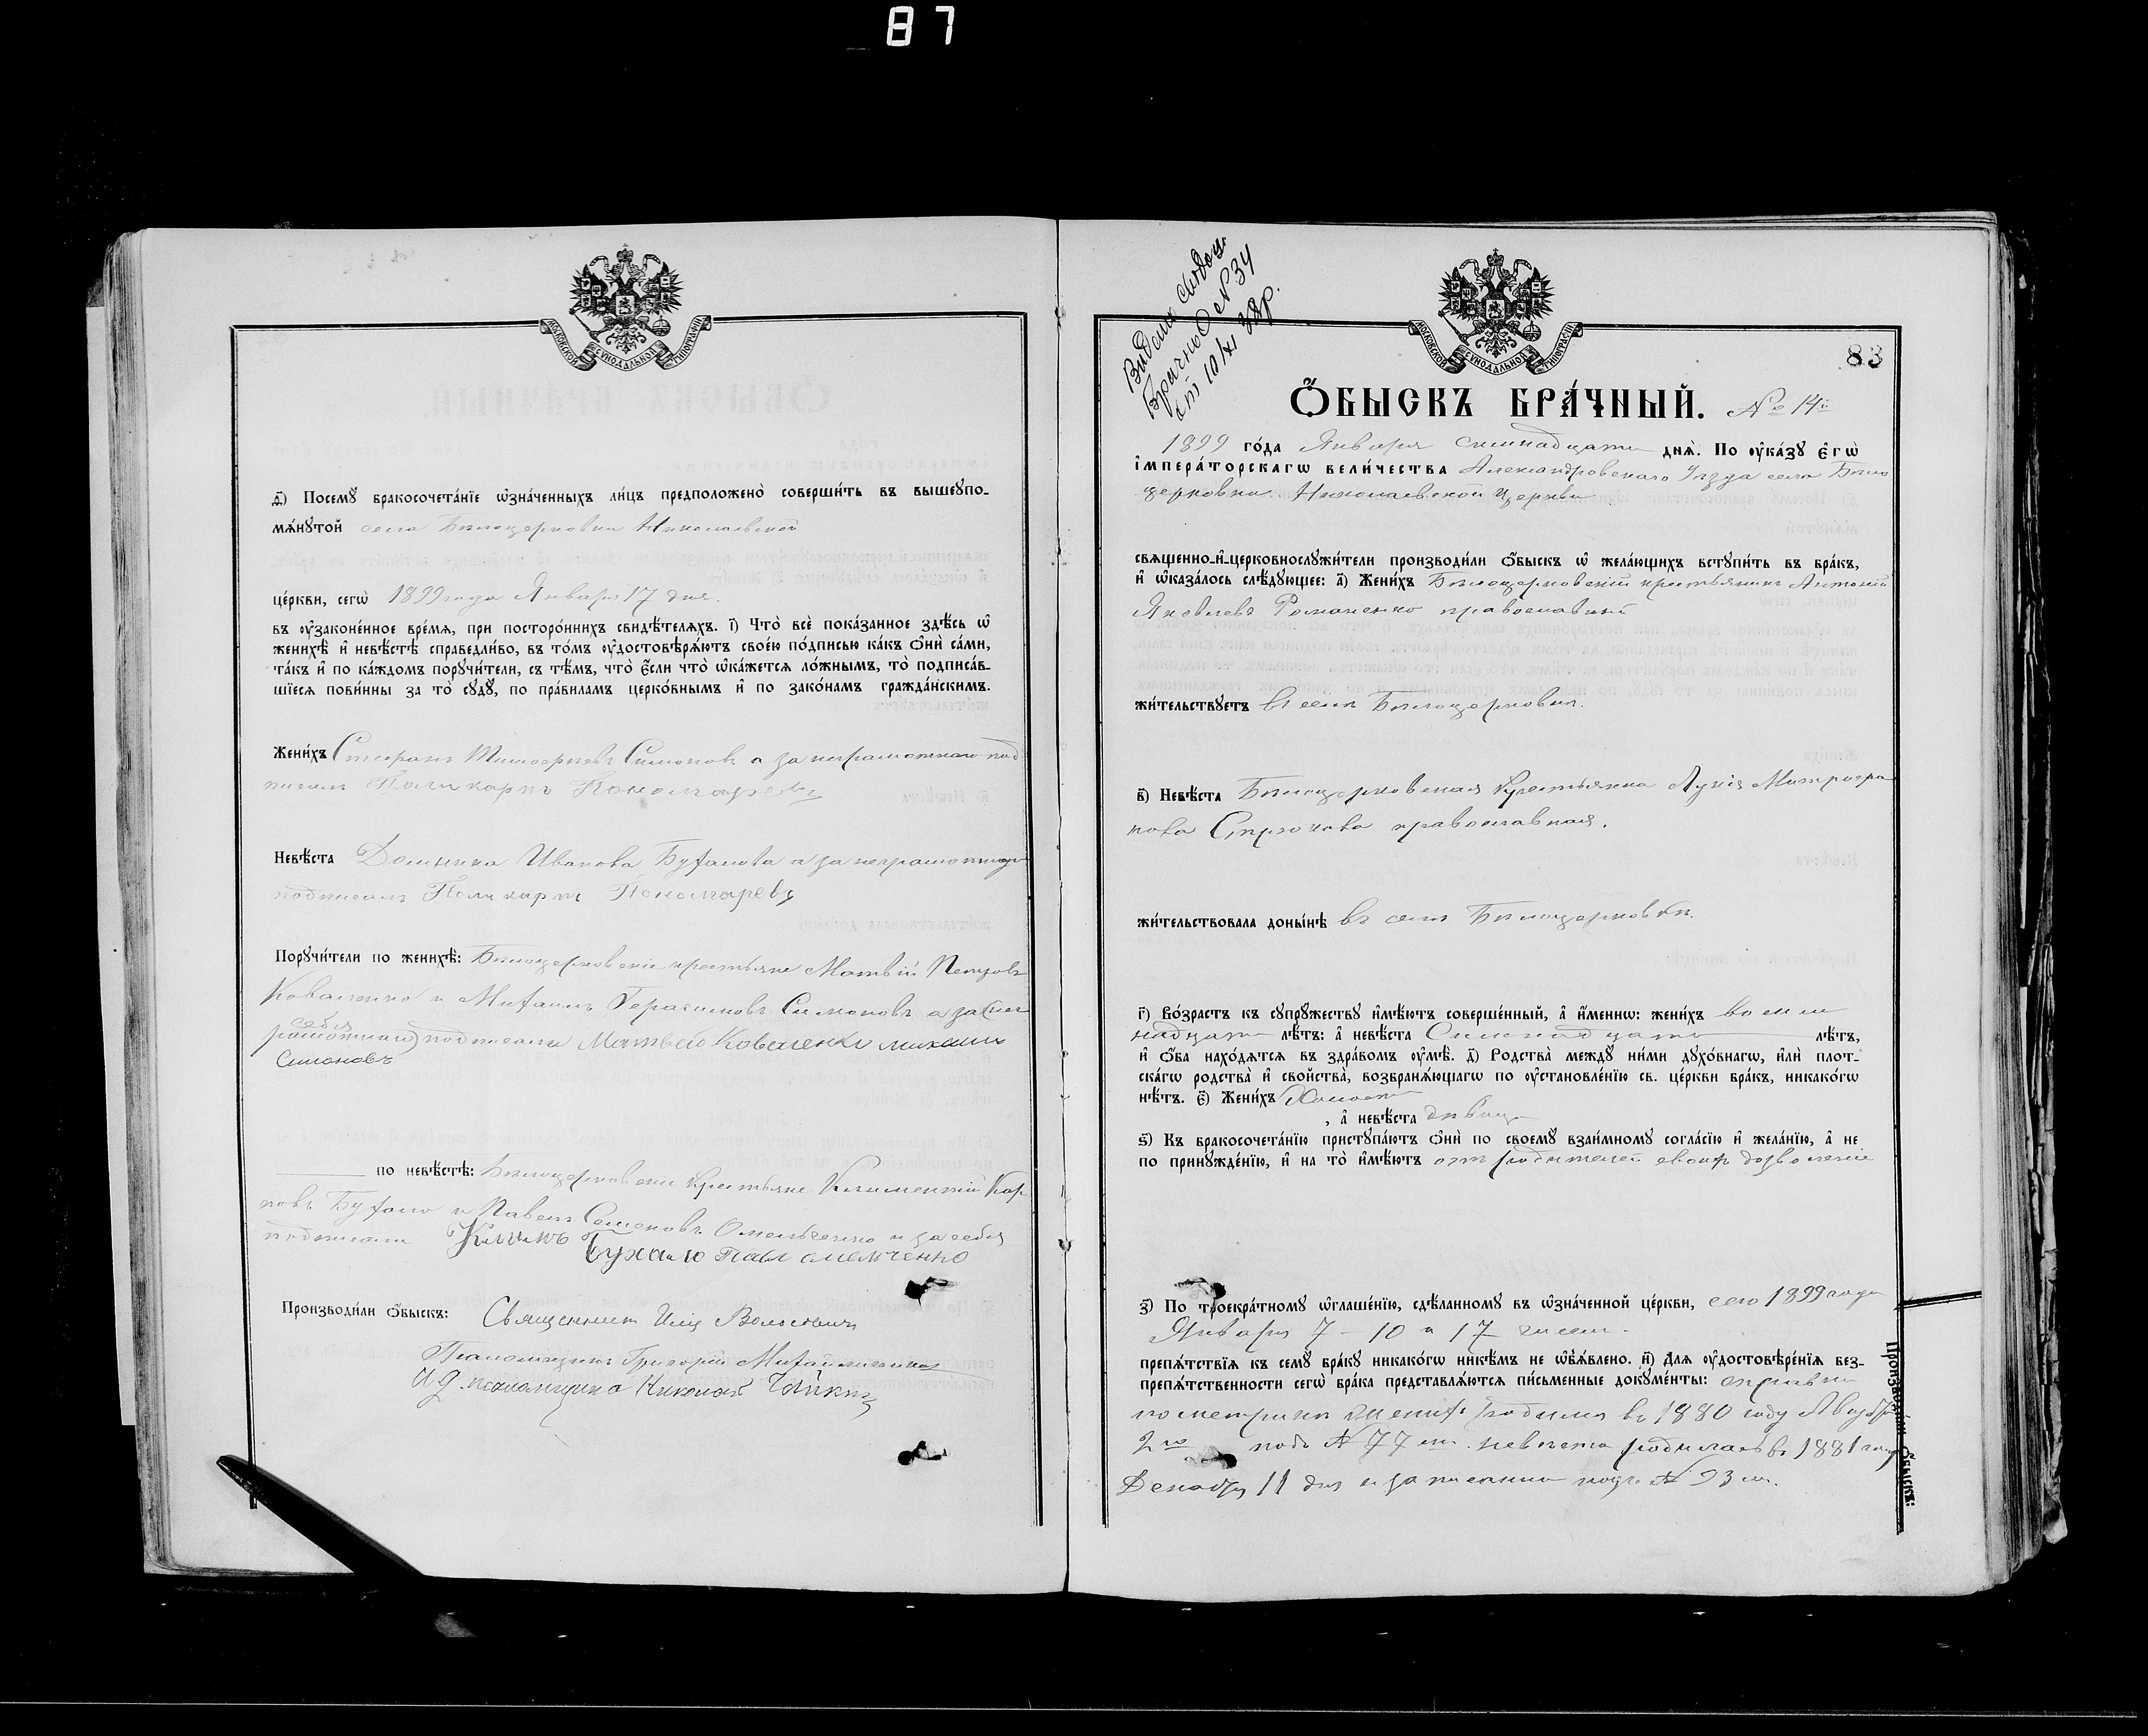 87
МОСКОВСКОЙ СѴНОДАЛЬНОЙ ТИПОГРАФІИ
ѳ҃) Посемꙋ бракосочета́нїе ѡ҆зна́ченныхъ ли́цъ предположено̀ соверши́ть въ вышеꙋпо-
мѧ́нꙋтой села Бѣлоцерковки Николаевской
це́ркви, сегѡ̀ 1899 года Января 17 дня.
въ ᲂу҆зако́ненное вре́мѧ, при посторо́ннихъ свидѣ́телѧхъ. і҃) Что̀ всѐ пока́занное здѣ́сь ѡ҆
женихѣ̀ и҆ невѣ́стѣ справедли́во, въ то́мъ ᲂу҆достовѣрѧ́ютъ свое́ю по́дписью ка́къ ѻ҆нѝ са́ми,
та́къ и҆ по ка́ждомъ порꙋчи́тели, съ тѣ́мъ, что̀ є҆́сли что̀ ѡ҆ка́жетсѧ ло́жнымъ, то̀ подписа́в-
шїесѧ пови́нны за то̀ сꙋдꙋ̀, по пра́виламъ церко́внымъ и҆ по зако́намъ гражда́нскимъ.
Жени́хъ Стефанъ Тимофеевъ Симоновъ а за неграмотнаго под
писалъ Поликарпъ Пономаревъ
Невѣ́ста Домникa Иванова Бухалова а за неграмотную
подписалъ Поликарпъ Пономаревъ
Порꙋчи́тели по женихѣ̀: Бѣлоцерковскіе крестьяне Матвѣй Петровъ
Коваленко и Михаилъ Герасимовъ Симоновъ а за (не
себя
грамотнаго) подписали Матвей Коваленко михаилъ
Симоновъ
по невѣ́стѣ: Бѣлоцерковскіе крестьяне Климентій Кар
повъ Бухало и Павелъ Семеновъ Омельченко и за себя
подписали Климъ Бухало Павл омельченко
Производи́ли ѻ҆́быскъ: Священникъ Илія Волосевичъ
Псаломщикъ Григорій Михайличенко
И.д. псаломщика Николай Чайкин
Видана свидоц.
Брачно О N 34
от 10/XI 38р.
МОСКОВСКОЙ СѴНОДАЛЬНОЙ ТИПОГРАФІИ
83
Ѻ҆́БЫСКЪ БРА́ЧНЫЙ. № 14й
1899 го́да Января семнадцати днѧ̀. По ᲂу҆ка́зꙋ є҆гѡ̀
і҆мпера́торскагѡ вели́чества Александровскаго Уѣзда села Бѣло
церковки Николаевской церкви
свѧщенно-и҆-церковнослꙋжи́тели производи́ли ѻ҆́быскъ ѡ҆ жела́ющихъ встꙋпи́ть въ бра́къ,
и҆ ѡ҆каза́лось слѣ́дꙋющее: а҃) Жени́хъ Бѣлоцерковскій крестьянинъ Антоній
Яковлевъ Романенко православный
жи́тельствꙋетъ въ селѣ Бѣлоцерковкѣ.
в҃) Невѣ́ста Бѣлоцерковская крестьянка Лукія Митрофа
нова Стрюкова православная.
жи́тельствовала доны́нѣ въ селѣ Бѣлоцерковкѣ.
г҃) Во́зрастъ къ сꙋпрꙋ́жествꙋ и҆мѣ́ютъ соверше́нный, а҆ и҆́меннѡ: жени́хъ восем
надцати лѣ́тъ: а҆ невѣ́ста Семнадцати лѣ́тъ,
и҆ ѻ҆́ба нахо́дѧтсѧ въ здра́вомъ ᲂу҆мѣ̀. д҃) Родства̀ междꙋ̀ ни́ми дꙋхо́внагѡ, и҆лѝ плот-
ска́гѡ родства̀ и҆ свойства̀, возбранѧ́ющагѡ по ᲂу҆становле́нїю св. це́ркви бра́къ, никако́гѡ
нѣ́тъ. є҃) Жени́хъ Холостъ
, а҆ невѣ́ста дѣвица
ѕ҃) Къ бракосочета́нїю пристꙋпа́ютъ ѻ҆нѝ по своемꙋ̀ взаи́мномꙋ согла́сїю и҆ жела́нїю, а҆ не
по принꙋжде́нїю, и҆ на то̀ и҆мѣ́ютъ отъ родителей своихъ дозволеніе
з҃) По троекра́тномꙋ ѡ҆глаше́нїю, сдѣ́ланномꙋ въ ѡ҆зна́ченной це́ркви, сего 1899 года
Января 7 - 10 и 17 чиселъ.
препѧ́тствїѧ къ семꙋ̀ бра́кꙋ никако́гѡ никѣ́мъ не ѡ҆б̾ѧ́влено. и҃) Длѧ ᲂу҆достовѣре́нїѧ без-
препѧ́тственности сегѡ̀ бра́ка представлѧ́ютсѧ пи́сьменные докꙋме́нты: справки
по метрикѣ женихъ родился въ 1880 году Августа
2го подъ № 77 м. невеста родилась въ 1881 году
Декабря 11 дня и записанна подъ № 93 м.
Производи́ли ѻ҆́быскъ: